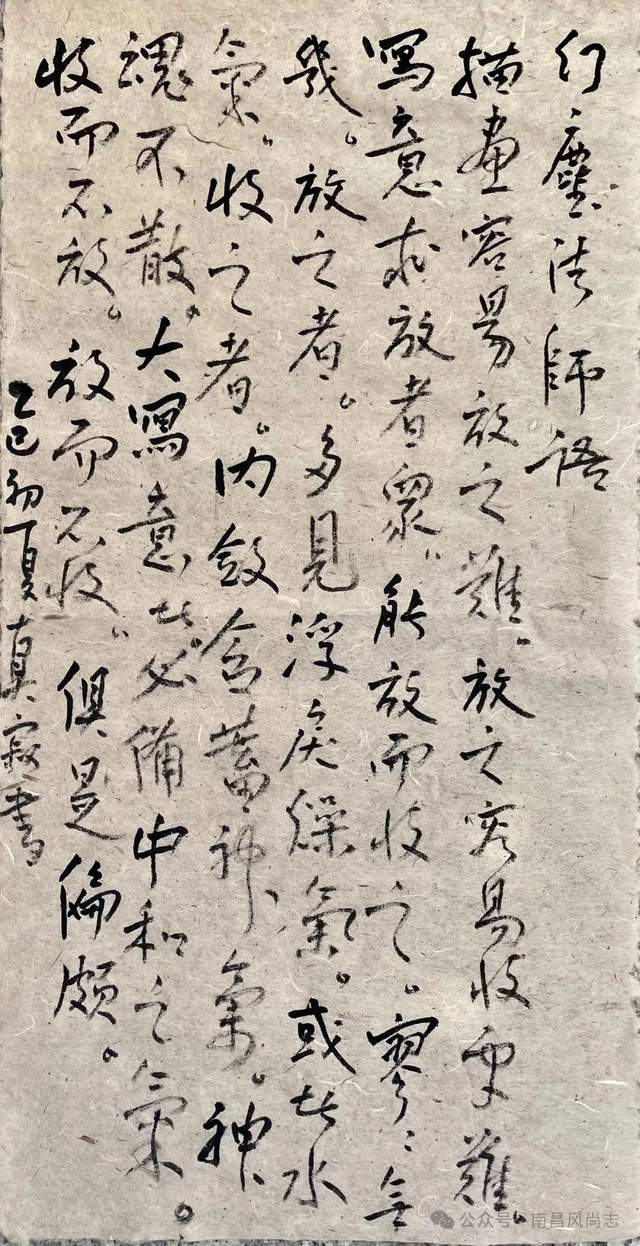 幻塵法師語
描畫容易放之難。放之容易收更難。
寫意求放者衆。能放而收之。寥〻無
幾。放之者。多見浮戾燥氣。或者水
氣。收之者。内斂含蓄神氣。神
魂不散。大寫意者必備中和之氣。
收而不放。放而不收。俱是偏頗。
乙巳初夏真寂書
公众号·南昌风尚志